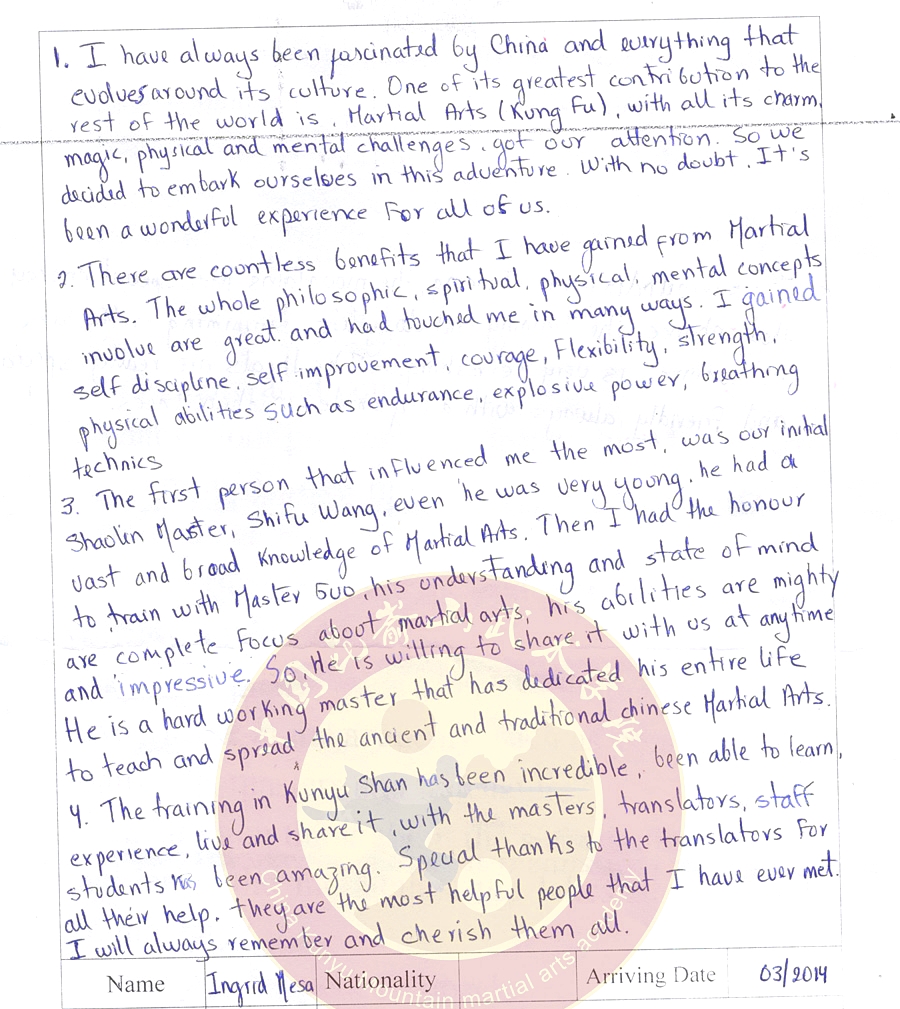 1. I have always been fascinated by China and everything that
evolves around its culture. One of its greatest contribution to the
rest of the world is, Martial Arts (Kung Fu), with all its charm,
magic, physical and mental challenges, got our attention. So we
decided to embark ourselves in this adventure. With no doubt, It's
been a wonderful experience For all of us.
2. There are countless benefits that I have gained from Martial
Arts. The whole philosophic, spiritual, physical, mental concepts
involve are great and had touched me in many ways. I gained
self discipline, self improvement, courage, Flexibility, strength,
physical abilities such as endurance, explosive power, breathing
technics
3. The first person that influenced me the most, was our initial
Shaolin Master, Shifu Wang, even he was very young, he had a
vast and broad knowledge of Martial Arts. Then I had the honour
to train with Master Guo, his understanding and state of mind
are complete Focus about martial arts, his abilities are mighty
and impressive. So, He is willing to share it with us at anytime
He is a hard working master that has dedicated his entire life
to teach and spread the ancient and traditional chinese Martial Arts.
4. The training in Kunyu Shan has been incredible, been able to learn,
experience, live and share it, with the masters, translators, staff
students has been amazing. Special thanks to the translators For
all their help, they are the most helpful people that I have ever met.
I will always remember and cherish them all.
Name Ingrid Mesa Nationality Arriving Date 03/2014
China Kunyu mountain martial arts academy